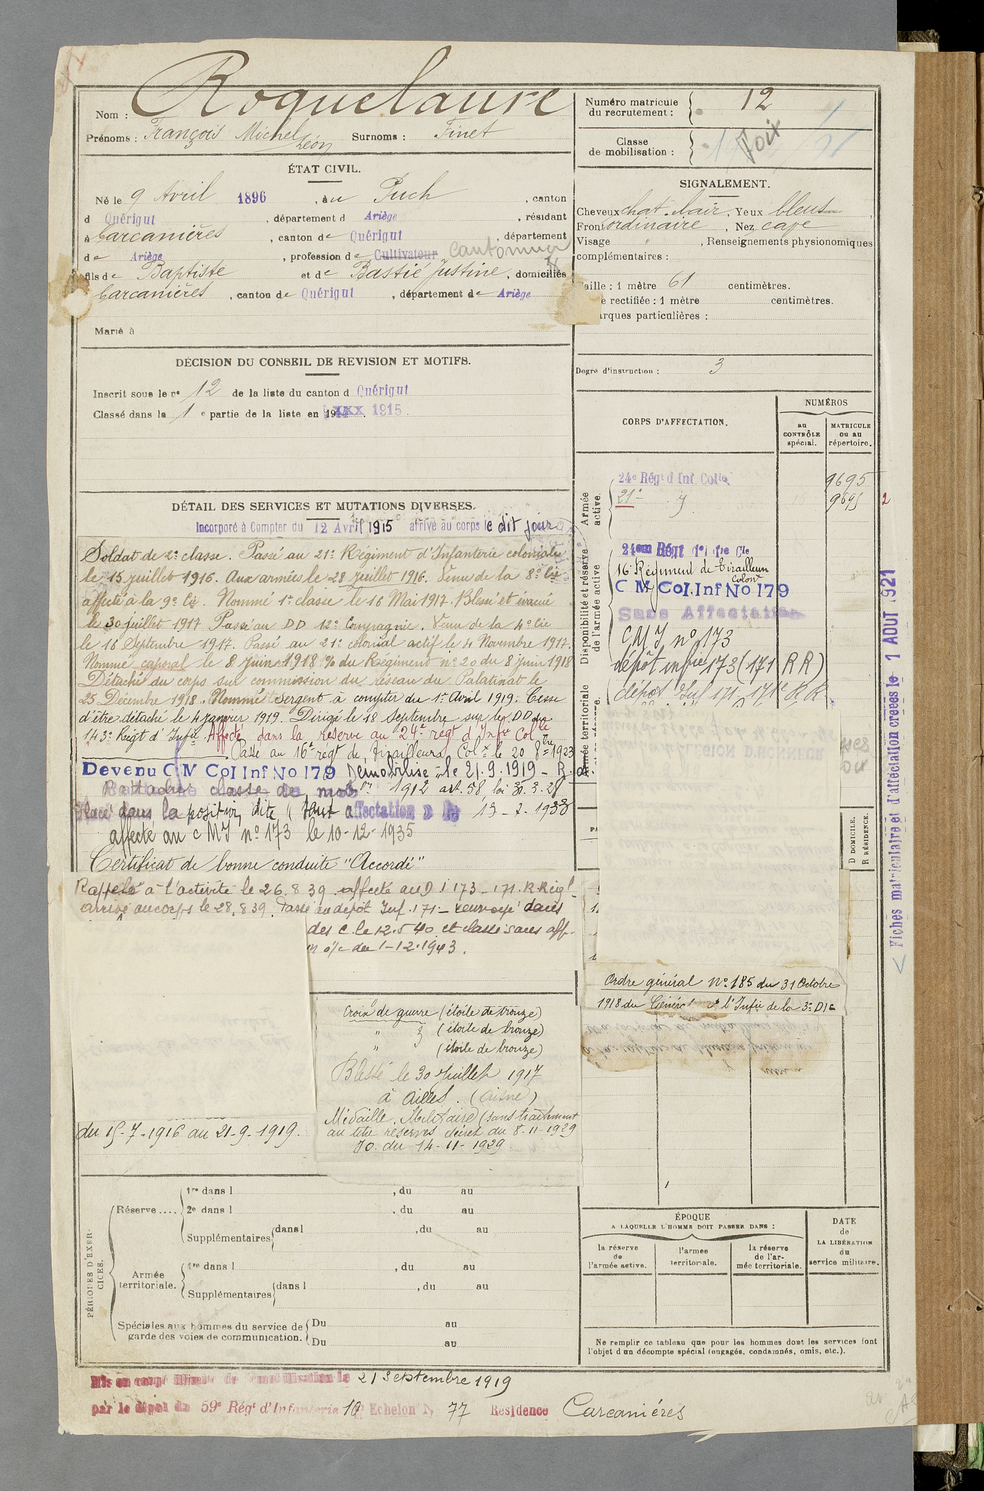 Nom : Roquelaure
Prénoms : François Michel Léon Surnoms : Finet
ÉTAT CIVIL.
Né le 9 Avril 1896, au Puch, canton
d Quérigut, département d Ariège, résidant
à Carcanières, canton de Quérigut, département
de Ariège, profession de Cultivateur Cantonnier
fils de Baptiste et de Bastié Justine, domiciliés
Carcanières, canton de Quérigut, département de Ariège
Marié à
DÉCISION DU CONSEIL DE REVISION ET MOTIFS.
Inscrit sous le nº 12 de la liste du canton d Quérigut
Classé dans la 1e partie de la liste en 19 1915.
DÉTAIL DES SERVICES ET MUTATIONS DIVERSES.
Incorporé à Compter du 12 Avril 1915 arrivé au corps le dit jour
Soldat de 2e classe. Passé au 21e Régiment d'Infanterie coloniale
le 15 juillet 1916. Aux armées le 28 juillet 1916. Venu de la 8e Cie
affecté à la 9e Cie. Nommé 1e classe le 16 Mai 1917. Blessé et évacué
le 30 juillet 1917. Passé au DD 12e Compagnie. Venu de la 4e Cie
le 18 Septembre 1917. Passé au 21e colonial actif le 4 Novembre 1917.
Nommé caporal le 8 juin 1918 % du Régiment nº 20 du 8 juin 1918
Détaché du corps sur commission du réseau du Palatinat le
25 Décembre 1918. Nommé Sergent à compter du 1er Avril 1919. Cesse
d'être détaché le 4 janvier 1919. Dirigé le 18 Septembre sur le DD du
143e Regt d'Infie. Affecté dans la réserve au 24e regt d'Infie Colle
Passé au 16e régt de Tirailleurs Colx le 20 1923
Devenu C M Col Inf No 179 Démobilisé le 21.9.1919
Rattaché classe de mob 1912 art. 58 loi 31.3.28
Placé dans la position dite (Sans affectation)
affecté au C M I nº 173 le 10-12-1935
Certificat de bonne conduite "Accordé"
Rappelé à l'activité le 26.8.39. affecté au D I 173 - 171. R Régl
arrivé au corps le 28.8.39. Passé au dépôt Inf. 171 - renvoyé dans
des c. le 12.5.40 et classé sans aff-
du 1-12-1943.
Croix de guerre (étoile de bronze)
" (étoile de bronze)
" (étoile de bronze)
Blessé le 30 Juillet 1917
à Ailles. (Aisne)
Médaille Militaire (sans traitement
au titre réserves décret du 8-11-1939
JO. du 14-11-1939
du 15-7-1916 au 21-9-1919.
PÉRIODES D'EXERCICES.
Réserve....
1re dans l , du au
2e dans l , du au
Supplémentaires dans l , du au
Armée territoriale.
1re dans l , du au
Supplémentaires dans l , du au
Spéciales aux hommes du service de garde des voies de communication.
Du au
Du au
Mis en congé illimité de démobilisation le 21 Septembre 1919
par le dépôt du 59e Régt d'Infanterie 10e Echelon N 77 Residence Carcanières
Numéro matricule du recrutement : 12
Classe de mobilisation :
Foix
SIGNALEMENT.
Cheveux chat. clair. Yeux bleus
Front ordinaire, Nez cave
Visage " , Renseignements physionomiques
complémentaires :
Taille : 1 mètre 61 centimètres.
e rectifiée : 1 mètre centimètres.
arques particulières :
Degré d'instruction : 3
CORPS D'AFFECTATION.
NUMÉROS
au CONTRÔLE spécial.
MATRICULE ou au répertoire.
Armée active.
24e Rég d'Inf. Colle 9695
21e 9695 2
Disponibilité et réserve de l'armée active.
24ème Régt d'Inf Cle
16e Régiment de Tirailleurs Colonx
C M Col. Inf No 179
Sans Affectation
CMI nº 173
dépôt infie 173 (171 R R)
dépôt Inf 171. 171e R R
Armée territoriale
D DOMICILE.
R RÉSIDENCE.
Ordre général Nº 185 du 31 Octobre
1918 du Général l'Infie de la 3e DIC
Fiches matriculaire et d'affectation créées le 1 AOUT 1921
ÉPOQUE
A LAQUELLE L'HOMME DOIT PASSER DANS :
la réserve de l'armée active.
l'armée territoriale.
la réserve de l'armée territoriale.
DATE de LA LIBÉRATION du service militaire.
Ne remplir ce tableau que pour les hommes dont les services font
l'objet d'un décompte spécial (engagés, condamnés, omis, etc.).